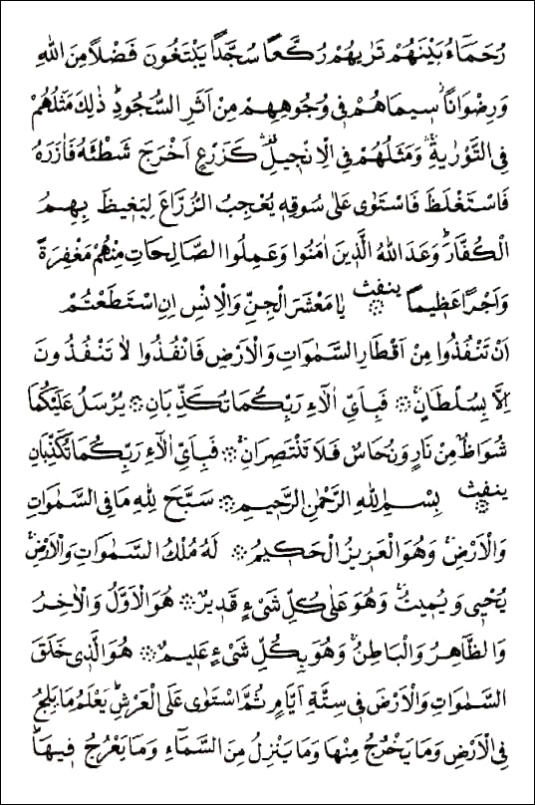 رُحَمَآءُ بَيْنَهُمْ تَرٰيهُمْ رُكَّعًا سُجَّدًا يَبْتَغُونَ فَضْلًا مِنَ اللهِ
وَرِضْوَانًاۘ سِيمَاهُمْ فِى وُجُوهِهِمْ مِنْ اَثَرِ السُّجُودِؕ ذٰلِكَ مَثَلُهُمْ
فِى التَّوْرٰيةِۚۛ وَمَثَلُهُمْ فِى الْاِنْجِيلِۚۛ كَزَرْعٍ اَخْرَجَ شَطْئَهُ فَاٰزَرَهُ
فَاسْتَغْلَظَ فَاسْتَوٰى عَلٰى سُوقِهِ يُعْجِبُ الزُّرَّاعَ لِيَغِيظَ بِهِمُ
الْكُفَّارَؕ وَعَدَ اللهُ الَّذِينَ اٰمَنُوا وَعَمِلُوا الصَّالِحَاتِ مِنْهُمْ مَغْفِرَةً
وَاَجْرًا عَظِيمًا ينفث ۞ يَا مَعْشَرَ الْجِنِّ وَالْاِنْسِ اِنِ اسْتَطَعْتُمْ
اَنْ تَنْفُذُوا مِنْ اَقْطَارِ السَّمٰوَاتِ وَالْاَرْضِ فَانْفُذُوا لَا تَنْفُذُونَ
اِلَّا بِسُلْطَانٍۚ ۞ فَبِاَىِّ اٰلَآءِ رَبِّكُمَا تُكَذِّبَانِ ۞ يُرْسَلُ عَلَيْكُمَا
شُوَاظٌ مِنْ نَارٍ وَنُحَاسٌ فَلَا تَنْتَصِرَانِۚ ۞ فَبِاَىِّ اٰلَآءِ رَبِّكُمَا تُكَذِّبَانِ
ينفث ۞ بِسْمِ اللهِ الرَّحْمٰنِ الرَّحِيمِ ۞ سَبَّحَ لِلّٰهِ مَا فِى السَّمٰوَاتِ
وَالْاَرْضِۚ وَهُوَ الْعَزِيزُ الْحَكِيمُ ۞ لَهُ مُلْكُ السَّمٰوَاتِ وَالْاَرْضِۚ
يُحْيِى وَيُمِيتُۚ وَهُوَ عَلٰى كُلِّ شَىْءٍ قَدِيرٌ ۞ هُوَ الْاَوَّلُ وَالْاٰخِرُ
وَالظَّاهِرُ وَالْبَاطِنُۚ وَهُوَ بِكُلِّ شَىْءٍ عَلِيمٌ ۞ هُوَ الَّذِى خَلَقَ
السَّمٰوَاتِ وَالْاَرْضَ فِى سِتَّةِ اَيَّامٍ ثُمَّ اسْتَوٰى عَلَى الْعَرْشِؕ يَعْلَمُ مَا يَلِجُ
فِى الْاَرْضِ وَمَا يَخْرُجُ مِنْهَا وَمَا يَنْزِلُ مِنَ السَّمَآءِ وَمَا يَعْرُجُ فِيهَاؕ